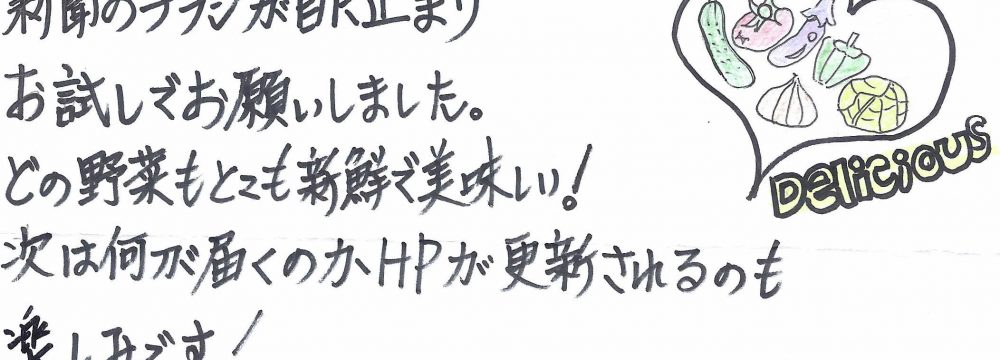 新聞のチラシが目に止まり
お試しでお願いしました。
どの野菜もとても新鮮で美味しい!
次は何が届くのか HPが更新されるのも
楽しみです!
Delicious